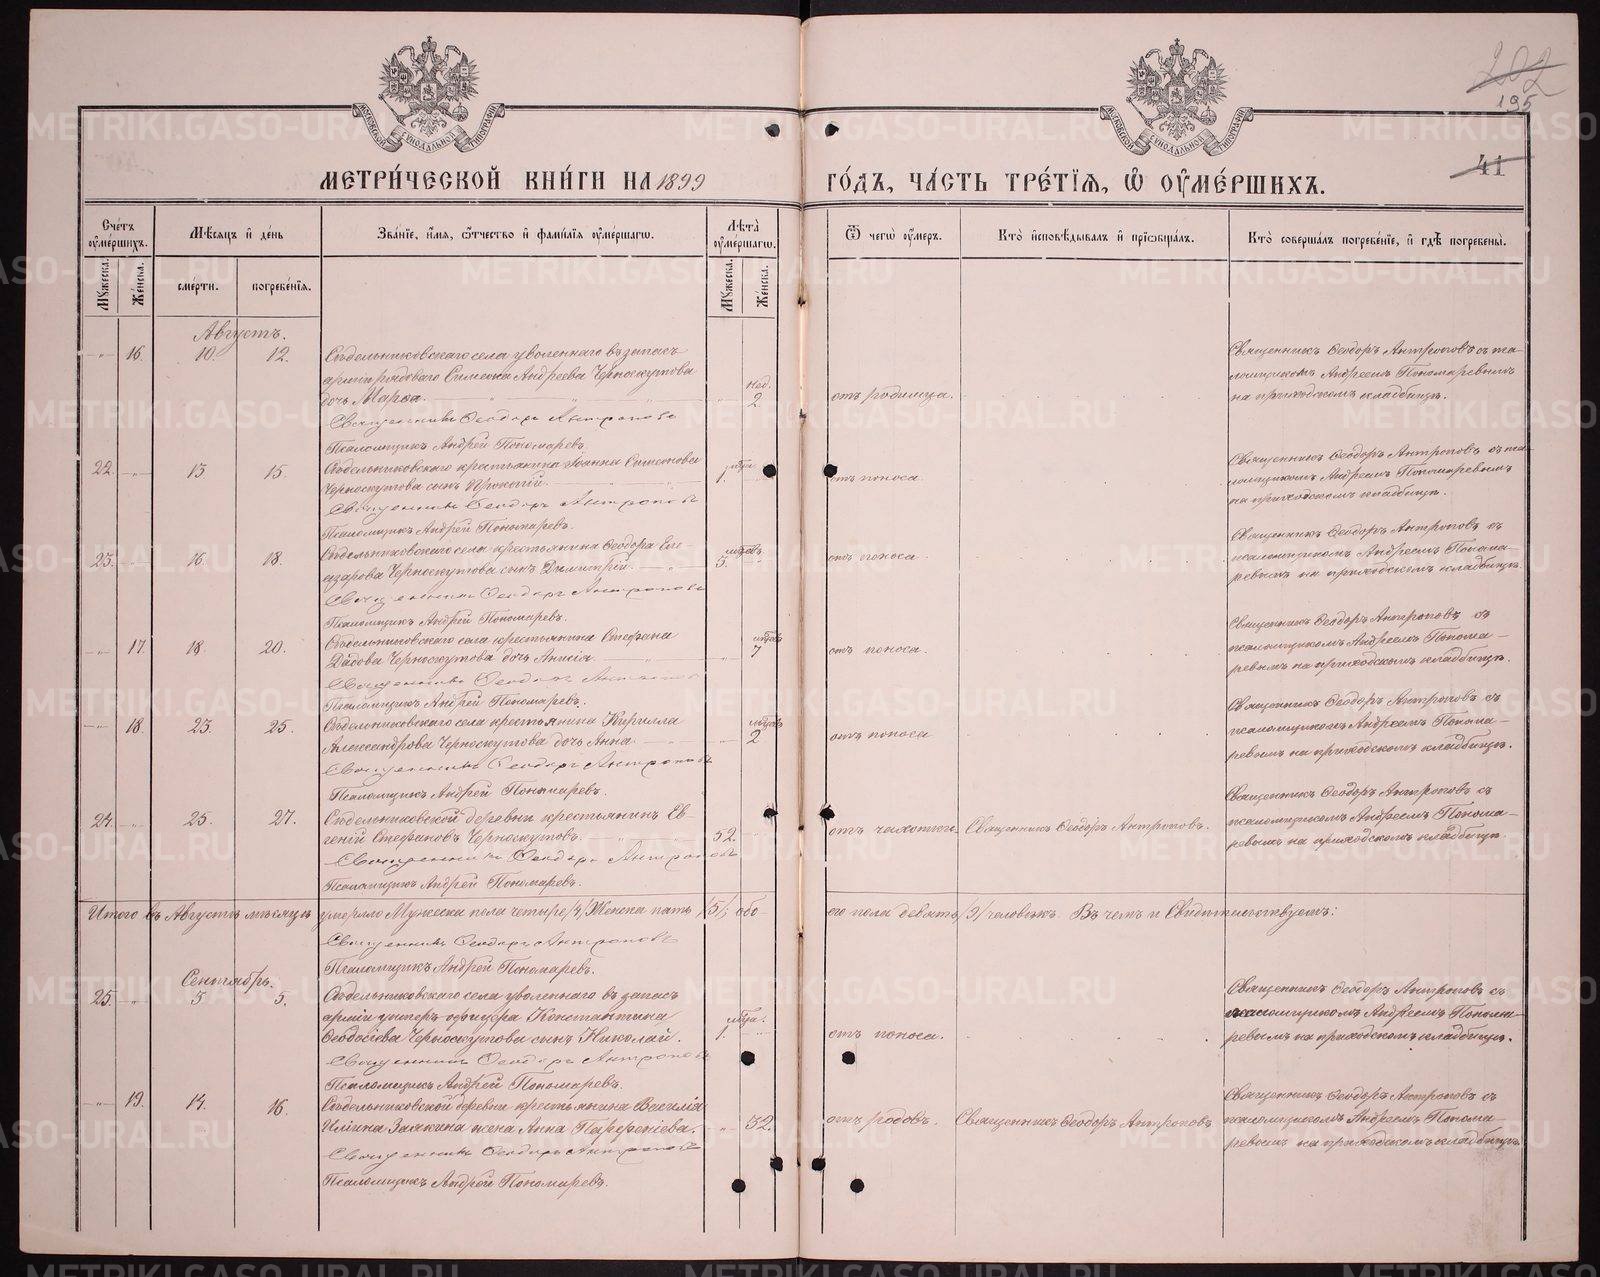 202
195
41
МОСКОВСКОЙ СѴНОДАЛЬНОЙ ТИПОГРАФІИ
МОСКОВСКОЙ СѴНОДАЛЬНОЙ ТИПОГРАФІИ
МЕТРИ́ЧЕСКОЙ КНИ́ГИ НА 1899 ГО́ДЪ, ЧА́СТЬ ТРЕ́ТІѦ, Ѡ҆ ОУ҆МЕ́РШИХЪ.
Сче́тъ оу҆ме́ршихъ.
Мѣ́сяцъ и҆ де́нь
Зва́нїе, и҆́мя, ѻ҆́тчество и҆ фами́лїя оу҆ме́ршагѡ.
Лѣ̀та оу҆ме́ршагѡ.
Ѿ чегѡ̀ оу҆́меръ.
Кто̀ и҆сповѣ́дывалъ и҆ прїѡбща́лъ.
Кто̀ соверша́лъ погребе́нїе, и҆ гдѣ̀ погребены̀.
Мꙋ́жеска.
Же́нска.
сме́рти.
погребе́нїя.
Мꙋ́жеска.
Же́нска.
Августъ.
16. 10. 12. Сѣдельниковскаго села уволеннаго въ запасъ
арміи рядоваго Симеона Андреева Черноскутова
дочь Марѳа. нед. 2 отъ родимца.
Священникъ Ѳеодоръ Антроповъ
Псаломщикъ Андрей Пономаревъ
Священникъ Ѳеодоръ Антроповъ съ псаломщикомъ Андреемъ Пономаревымъ
на приходскомъ кладбищѣ.
22. 13 15. Сѣдельниковскаго крестьянина Іоанна Симеонова
Черноскутова сынъ Прокопій. 1. отъ поноса
Священникъ Ѳеодоръ Антроповъ
Псаломщикъ Андрей Пономаревъ.
Священникъ Ѳеодоръ Антроповъ съ псаломщикомъ Андреемъ Пономаревымъ
на приходскомъ кладбищѣ.
23. 16. 18. Сѣдельниковскаго села крестьянина Ѳеодора Ели-
азарова Черноскутова сынъ Димитрій. 5. отъ поноса.
Священникъ Ѳеодоръ Антроповъ
Псаломщикъ Андрей Пономаревъ.
Священникъ Ѳеодоръ Антроповъ съ
псаломщикомъ Андреемъ Понома-
ревымъ на приходскомъ кладбищѣ.
17. 18. 20. Сѣдельниковскаго села крестьянина Стефана
Черноскутова дочь Анисія. 7 отъ поноса.
Священникъ Ѳеодоръ Антроповъ
Псаломщикъ Андрей Пономаревъ.
Священникъ Ѳеодоръ Антроповъ съ
псаломщикомъ Андреемъ Понома-
ревымъ на приходскомъ кладбищѣ.
18. 23. 25. Сѣдельниковскаго села крестьянина Кирилла
Александрова Черноскутова дочь Анна. 2 отъ поноса
Священникъ Ѳеодоръ Антроповъ
Псаломщикъ Андрей Пономаревъ.
Священникъ Ѳеодоръ Антроповъ съ
псаломщикомъ Андреемъ Понома-
ревымъ на приходскомъ кладбищѣ.
24. 25. 27. Сѣдельниковской деревни крестьянинъ Ев-
геній Стефановъ Черноскутовъ. 52. отъ чахотки. Священникъ Ѳеодоръ Антроповъ.
Священникъ Ѳеодоръ Антроповъ
Псаломщикъ Андрей Пономаревъ.
Священникъ Ѳеодоръ Антроповъ съ
псаломщикомъ Андреемъ Понома-
ревымъ на приходскомъ кладбищѣ.
Итого въ Августѣ мѣсяцѣ умерло Мужеска пола четыре /4/, Женска пять /5/; обо- его пола девять /9/ человѣкъ. Въ чемъ и Свидѣтельствуемъ:
Священникъ Ѳеодоръ Антроповъ
Псаломщикъ Андрей Пономаревъ.
Сентябрь.
25 5 5. Сѣдельниковскаго села уволеннаго въ запасъ
арміи унтеръ-офицера Константина
Ѳеодосіева Черноскутова сынъ Николай. 1. отъ поноса.
Священникъ Ѳеодоръ Антроповъ
Псаломщикъ Андрей Пономаревъ.
Священникъ Ѳеодоръ Антроповъ съ
псаломщикомъ Андреемъ Понома-
ревымъ на приходскомъ кладбищѣ.
19. 14. 16. Сѣдельниковской деревни крестьянина Василія
Ильина Замкина жена Анна Парфеніева. 32. отъ родовъ. Священникъ Ѳеодоръ Антроповъ
Священникъ Ѳеодоръ Антроповъ
Псаломщикъ Андрей Пономаревъ.
Священникъ Ѳеодоръ Антроповъ съ
псаломщикомъ Андреемъ Понома-
ревымъ на приходскомъ кладбищѣ.
METRIKI.GASO-URAL.RU